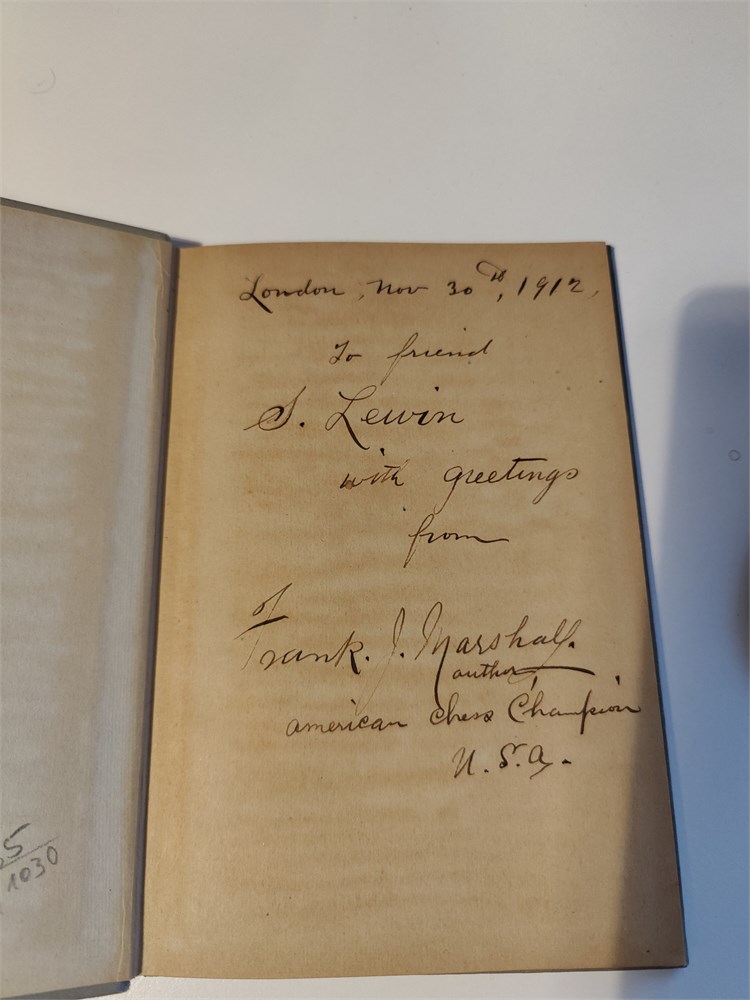 London, Nov 30th, 1912,
To friend
S. Lewin
with greetings
from
Frank. J. Marshall.
author
american chess Champion
U. S. a.
5
1030